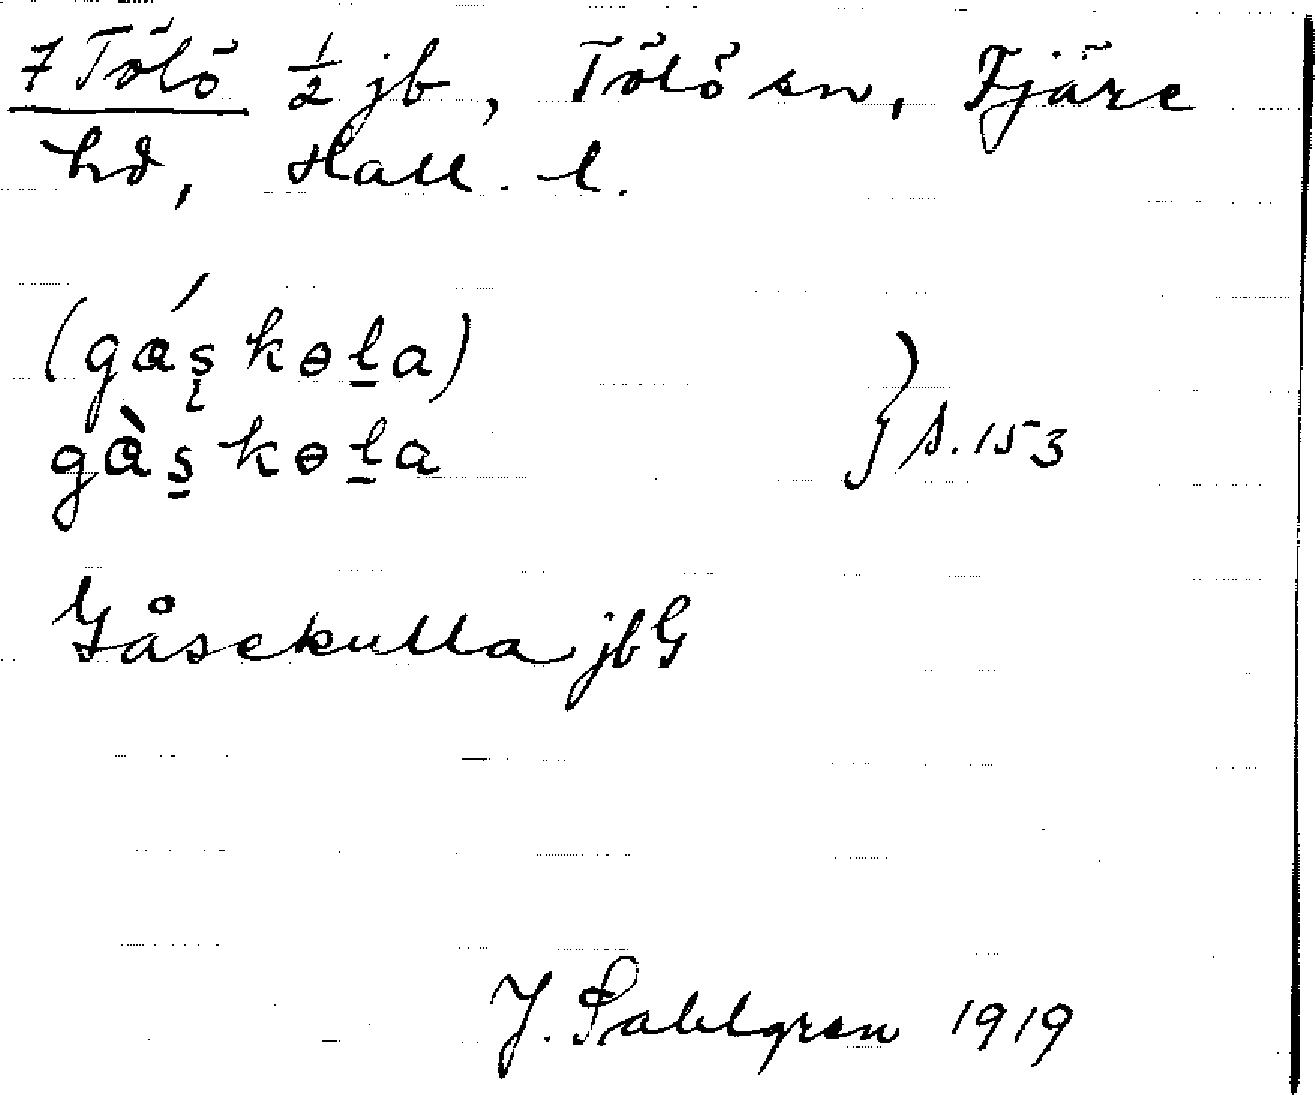 7 Tölö ½ jb, Tölö sn, Fjäre
hd, Hall. l.
(gás̨kɵl̠a)
gàs̠kɵl̠a } s. 153
Gåsekulla jbG
J. Sahlgren 1919